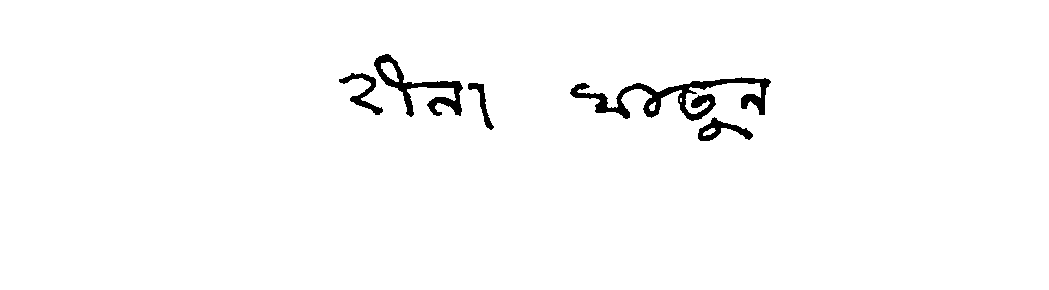 রীনা খাতুন